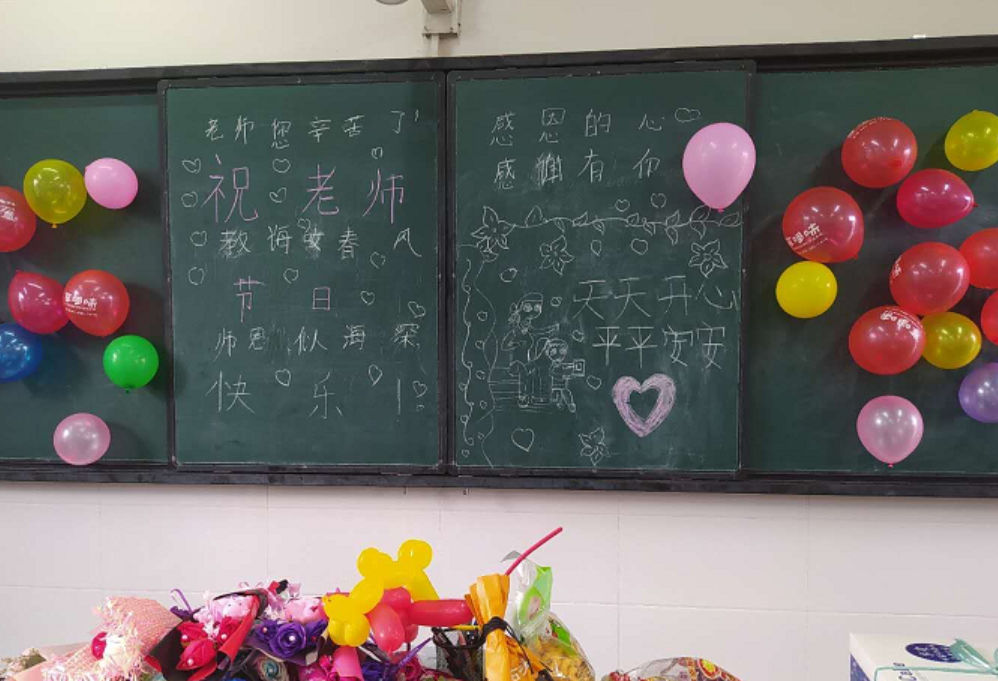 老师您辛苦了!
祝老师
教诲如春风
节日
师恩似海深
快乐!
感恩的心
感谢有你
天天开心
平平安安